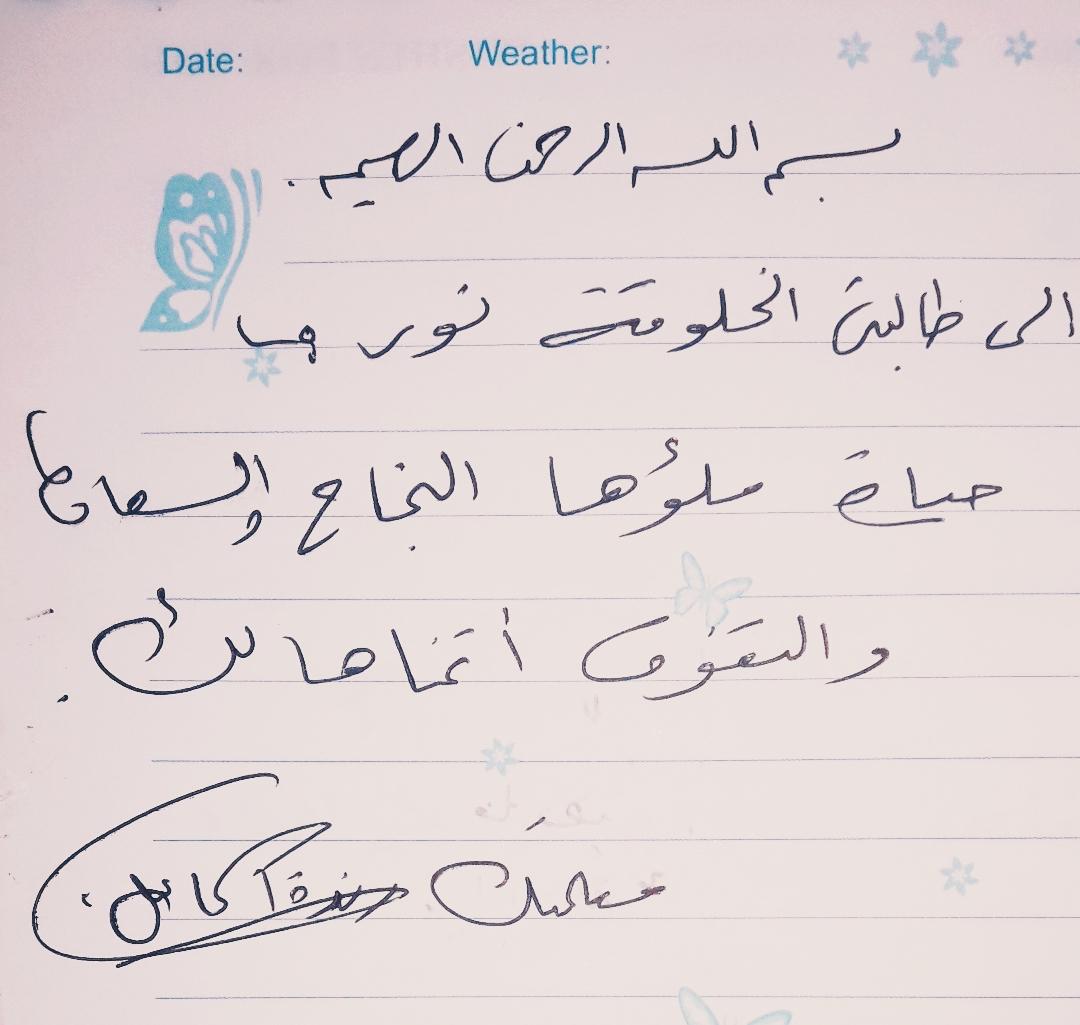 Date: Weather:
بسم الله الرحمن الرحيم .
الى طالبتي الخلوقة نور
حياة ملؤها النجاح والسعادة
والتفوق أتمناها لكِ .
معلمتك